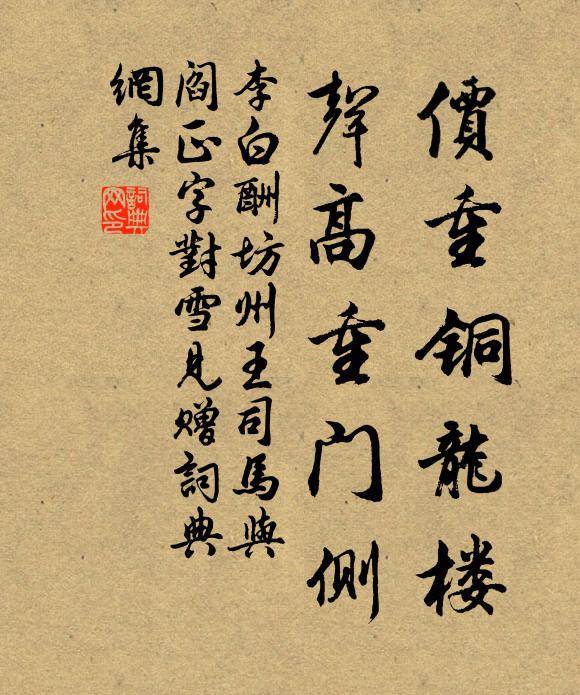 價重铜龍楼
聲高重门侧
李白酬坊州王司馬與
閻正字對雪見赠詞典
網集
詞典
网印